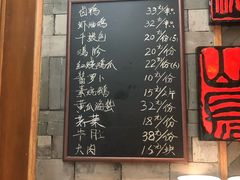 卤鸭 33元/只
虾油鸡 32元/份
千张包 20元/份(5)
鸡胗 20元/份
红烧鸡爪 22元/份(6)
酱萝卜 10元/份
素烧鹅 15元/份
黄瓜油 32元/份
荠菜 18元/份
牛肚 38元/份
大肉 15元/块